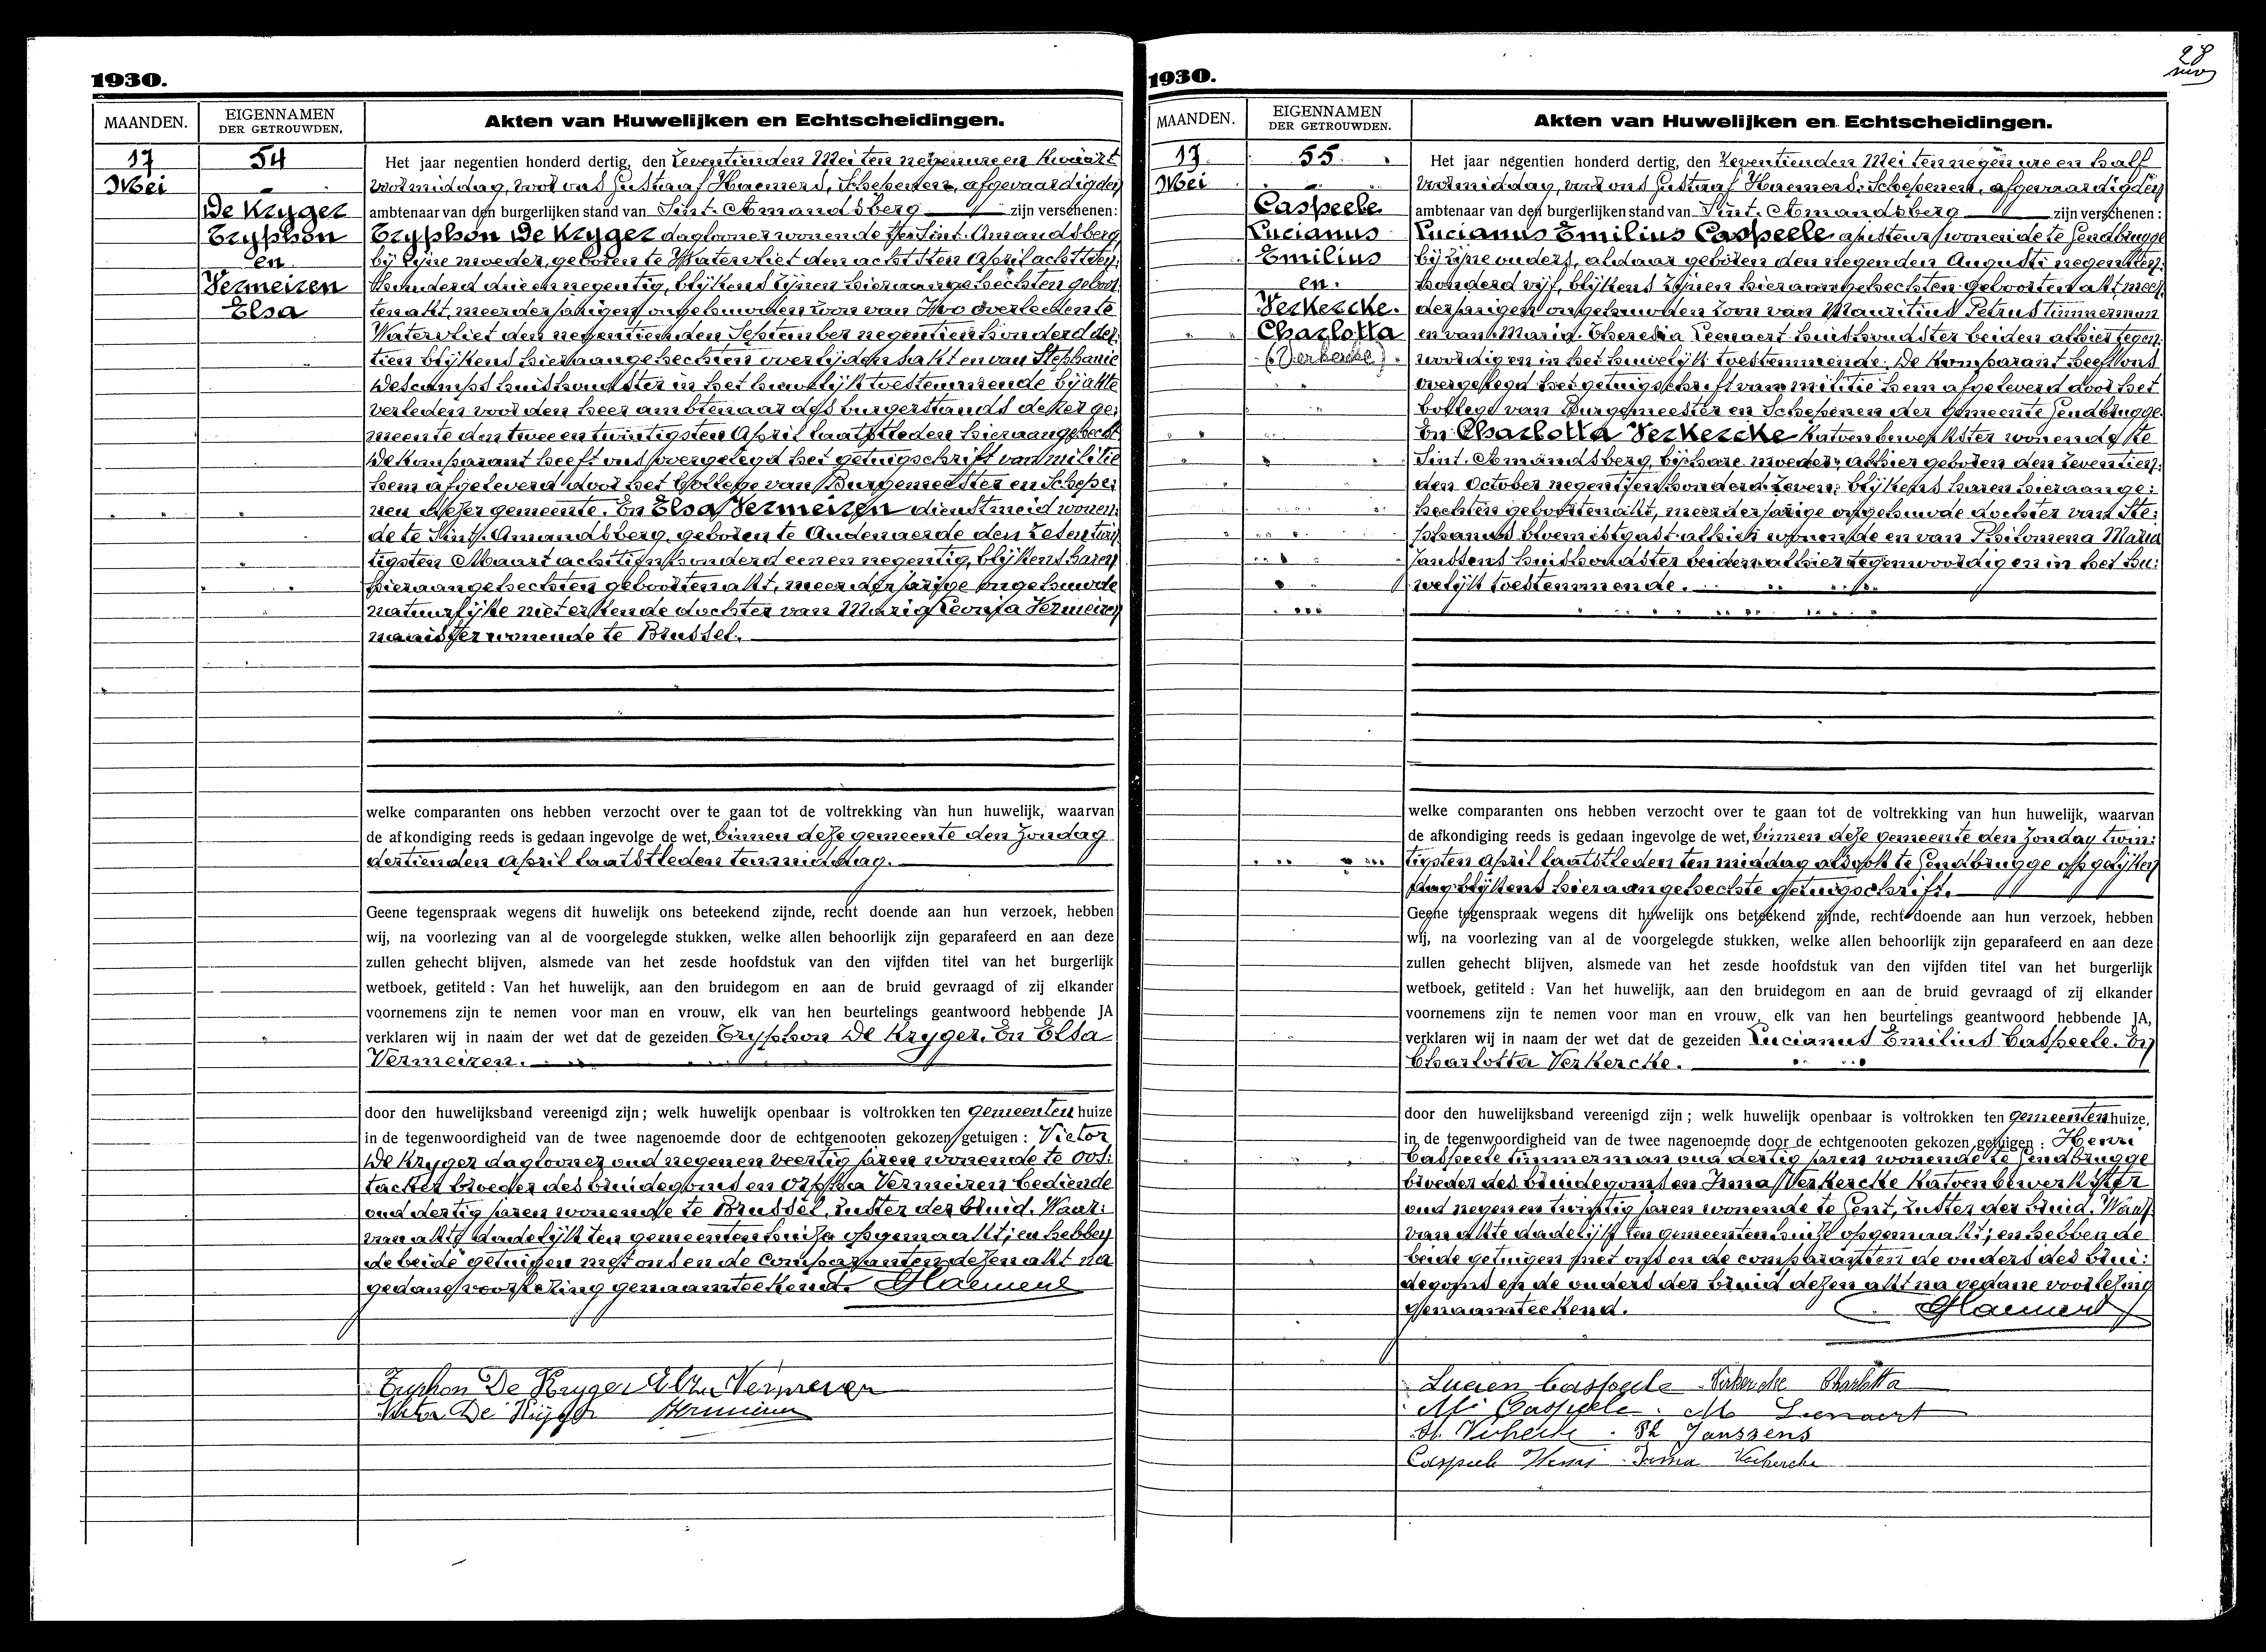 1930.
MAANDEN.
EIGENNAMEN
DER GETROUWDEN.
Akten van Huwelijken en Echtscheidingen.
17
Mei
54
De Kryger
Tryphon
en
Vermeiren
Elsa
Het jaar negentien honderd dertig, den zeventienden Mei ten negen ure en kwaart
voormiddag, voor ons Gustaaf Haemers, Schepenen, afgevaardigden
ambtenaar van den burgerlijken stand van Sint-Amandsberg zijn verschenen:
Tryphon De Kryger daglooner wonende te Sint-Amandsberg
bij zijne moeder, geboren te Watervliet den achtsten April achttien
honderd drie en negentig, blijkens zijnen hieraangehechten geboor:
tenakt, meerderjarigen ongehuwden zoon van Ivo overleden te
Watervliet den negentienden September negentien honderd der:
tien blijkens hieraangehechten overlijdensakt en van Stephanie
Descamps huishoudster in het huwelijk toestemmende bij akte
verleden voor den heer ambtenaar des burgerstands dezer ge:
meente den twee en twintigsten April laatstleden hieraangehecht.
De komparant heeft ons overgelegd het getuigschrift van militie
hem afgeleverd door het Collegie van Burgemeester en Schepe:
nen dezer gemeente. En Elsa Vermeiren dienstmeid wonen:
de te Sint-Amandsberg, geboren te Audenaerde den zesentwin
tigsten Maart achttien honderd een en negentig, blijkens haren
hieraangehechten geboortenakt, meerderjarige ongehuwde
natuurlijke niet erkende dochter van Maria Leonia Vermeiren
naaister wonende te Brussel.
welke comparanten ons hebben verzocht over te gaan tot de voltrekking van hun huwelijk, waarvan
de afkondiging reeds is gedaan ingevolge de wet, binnen deze gemeente den Zondag
dertienden April laatstleden ten middag.
Geene tegenspraak wegens dit huwelijk ons beteekend zijnde, recht doende aan hun verzoek, hebben
wij, na voorlezing van al de voorgelegde stukken, welke allen behoorlijk zijn geparafeerd en aan deze
zullen gehecht blijven, alsmede van het zesde hoofdstuk van den vijfden titel van het burgerlijk
wetboek, getiteld : Van het huwelijk, aan den bruidegom en aan de bruid gevraagd of zij elkander
voornemens zijn te nemen voor man en vrouw, elk van hen beurtelings geantwoord hebbende JA
verklaren wij in naam der wet dat de gezeiden Tryphon De Kryger. En Elsa
Vermeiren.
door den huwelijksband vereenigd zijn; welk huwelijk openbaar is voltrokken ten gemeentenhuize
in de tegenwoordigheid van de twee nagenoemde door de echtgenooten gekozen getuigen : Victor
De Kryger daglooner oud negen en veertig jaren wonende te Oos:
tacker broeder des bruidegoms en Orpha Vermeiren bediende
oud dertig jaren wonende te Brussel, zuster der bruid. Waar:
van akte dadelijk ten gemeentenhuize opgemaakt; en hebben
de beide getuigen met ons en de comparanten dezen akt na
gedane voorlezing genaamteekend. GHaemers
Tryphon De Kryger Elsa Vermeiren
Viktor De Kryger Vermeiren
1930.
28
MAANDEN.
EIGENNAMEN
DER GETROUWDEN.
Akten van Huwelijken en Echtscheidingen.
17
Mei
55
Caspeele
Lucianus
Emilius
en
Verkercke.
Charlotta
(Verkercke)
Het jaar negentien honderd dertig, den zeventienden Mei ten negen ure en half
voormiddag, voor ons Gustaaf Haemers. Schepenen, afgevaardigden
ambtenaar van den burgerlijken stand van Sint-Amandsberg zijn verschenen :
Lucianus Emilius Caspeele apisteur wonende te Gendbrugge
bij zijne ouders, aldaar geboren den negenden Augusti negentien:
honderd vijf, blijkens zijnen hieraangehechten geboortenakt, meer:
derjarigen ongehuwden zoon van Mauritius Petrus timmerman
en van Maria Theresia Leenaert huishoudster beiden alhier tegen:
woordig en in het huwelijk toestemmende. De komparant heeft ons
overgelegd het getuigschrift van militie hem afgeleverd door het
Collegie van Burgemeester en Schepenen der gemeente Gendbrugge.
En Charlotta Verkercke katoenbewerkster wonende te
Sint-Amandsberg, bij hare moeder, alhier geboren den zeventien:
den October negentien honderd zeven, blijkens haren hieraange:
hechten geboortenakt, meerderjarige ongehuwde dochter van Ste:
phanus bloemistgast alhier wonende en van Philomena Maria
Janssens huishoudster beiden alhier tegenwoordig en in het hu:
welijk toestemmende.
welke comparanten ons hebben verzocht over te gaan tot de voltrekking van hun huwelijk, waarvan
de afkondiging reeds is gedaan ingevolge de wet, binnen deze gemeente den Zondag twin:
tigsten April laatstleden ten middag alsook te Gendbrugge op gelijken
dag blijkens hieraangehechte getuigschrift.
Geene tegenspraak wegens dit huwelijk ons beteekend zijnde, recht doende aan hun verzoek, hebben
wij, na voorlezing van al de voorgelegde stukken, welke allen behoorlijk zijn geparafeerd en aan deze
zullen gehecht blijven, alsmede van het zesde hoofdstuk van den vijfden titel van het burgerlijk
wetboek, getiteld : Van het huwelijk, aan den bruidegom en aan de bruid gevraagd of zij elkander
voornemens zijn te nemen voor man en vrouw, elk van hen beurtelings geantwoord hebbende JA,
verklaren wij in naam der wet dat de gezeiden Lucianus Emilius Caspeele. En
Charlotta Verkercke.
door den huwelijksband vereenigd zijn ; welk huwelijk openbaar is voltrokken ten gemeentenhuize,
in de tegenwoordigheid van de twee nagenoemde door de echtgenooten gekozen getuigen : Henri
Caspeele timmerman oud dertig jaren wonende te Gendbrugge
broeder des bruidegoms en Irma Verkercke katoenbewerkster
oud negen en twintig jaren wonende te Gent, zuster der bruid. Waar:
van akte dadelijk ten gemeentenhuize opgemaakt; en hebben de
beide getuigen met ons en de comparanten de ouders des brui:
degoms en de ouders der bruid dezen akt na gedane voorlezing
genaamteekend. GHaemers
Lucien Caspeele Verkercke Charlotta
M. Caspeele. M Leenaert
St. Verkercke. Ph Janssens
Caspeele Henri Irma Verkercke